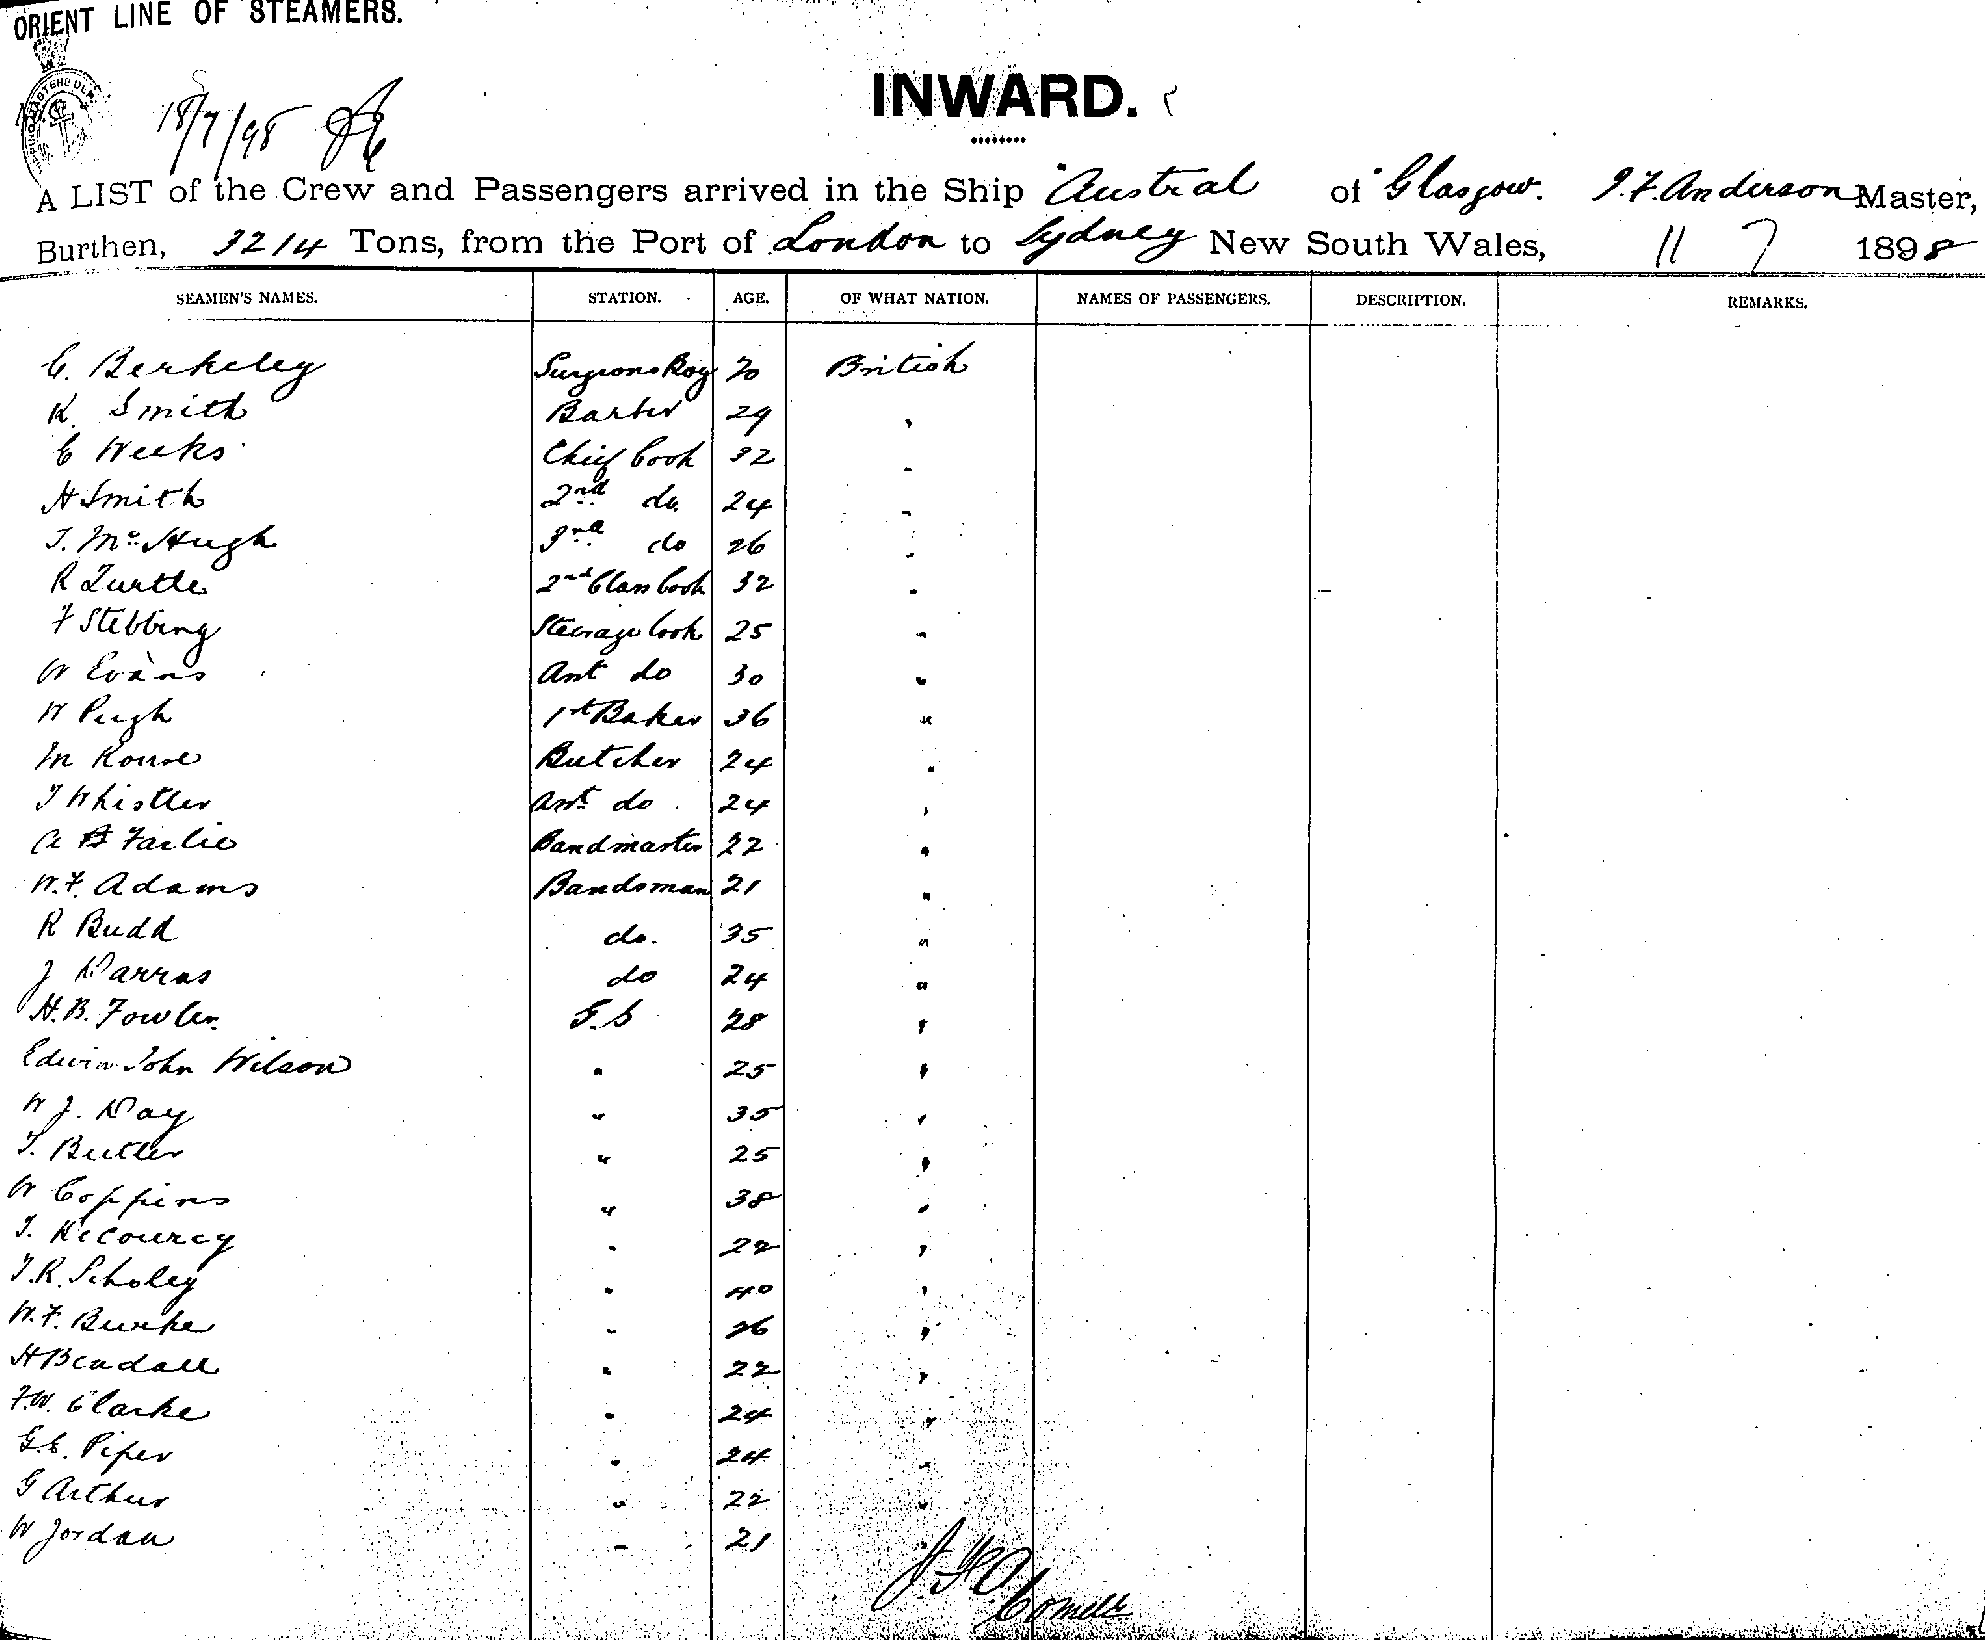 ORIENT LINE OF STEAMERS.
18/7/98
INWARD.
A LIST of the Crew and Passengers arrived in the Ship "Austral of "Glasgow. J. F. Anderson Master,
Burthen, 3214 Tons, from the Port of London to Sydney New South Wales, 11 7 1898
SEAMEN'S NAMES. STATION. AGE. OF WHAT NATION. NAMES OF PASSENGERS. DESCRIPTION. REMARKS.
C. Berkeley Surgeons Boy 20 British
K. Smith Barber 29 "
C Weeks Chief Cook 32 "
H Smith 2nd do. 24 "
T. McHugh 3rd do 26 "
R Turtle 2nd Class Cook 32 "
F Stebbing Steerage Cook 25 "
W Evans Asst do 30 "
W Pugh 1st Baker 36 "
M Rouse Butcher 24 "
T Whistler Asst do 24 "
A Fairlie Bandmaster 22 "
W. F. Adams Bandsman 21 "
R Budd do. 35 "
J Darras do 24 "
H. B. Fowler G. S 28 "
Edwin John Wilson " 25 "
W J. Day " 35 "
T. Butler " 25 "
W Coppins " 38 "
T. DeCourcy " 22 "
T. R. Scholey " 40 "
W. F. Burke " 26 "
H Beadall " 22 "
F. W. Clarke " 24 "
G. C. Piper " 24 "
G Arthur " 22 "
W Jordan " 21 "